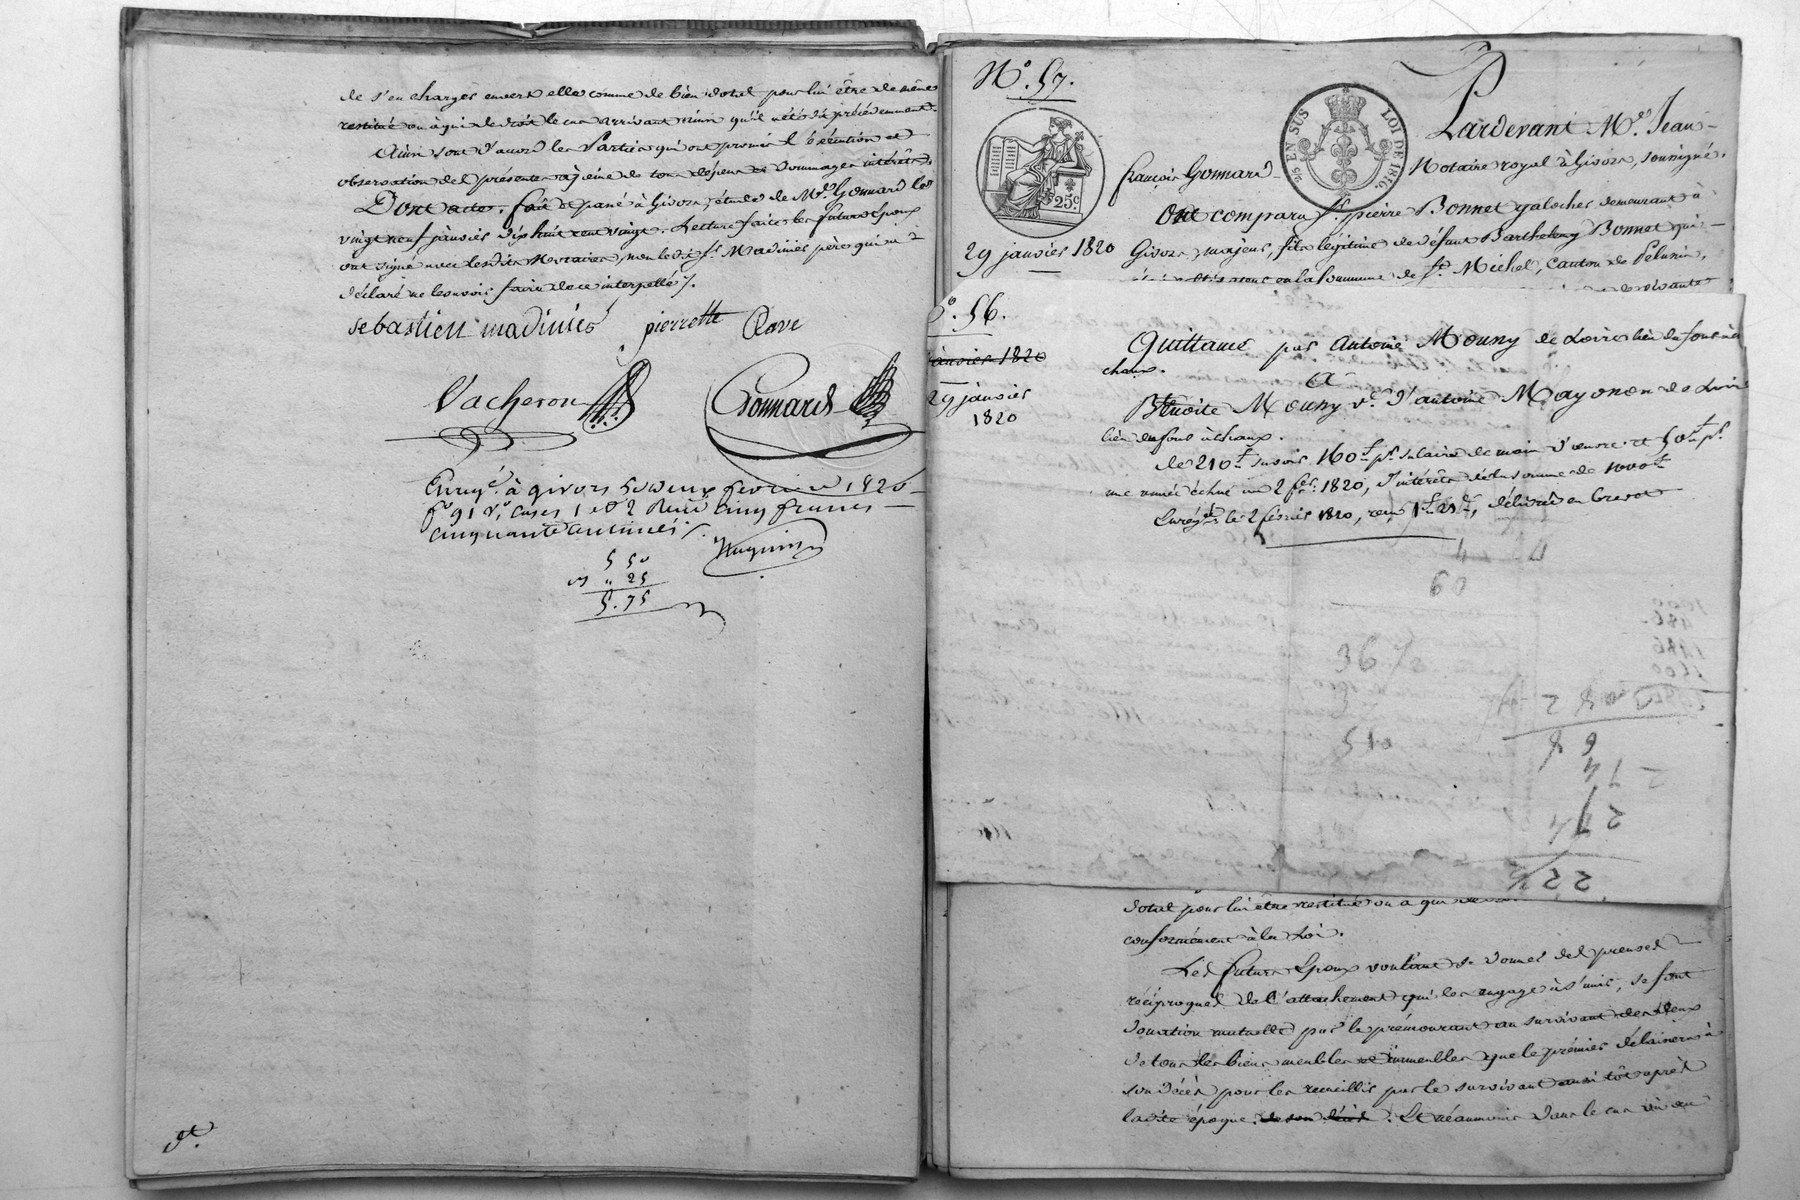 de s'en charger envers elle comme de bien dotal pour lui être de même
restitué ou à qui de droit le cas arrivant ainsi qu'il a été dit précédemment.
Ainsi sont d'accord les Parties qui ont promis l'exécution et
observation des présentes à peine de tous dépens et dommages intérêts.
Dont acte. fait et passé à Givors, étude de Me. Gonnard les
vingt neuf janvier dix huit cent vingt. Lecture faite les futurs époux
ont signé avec lesdits Notaires, non ledit Sr. Madinier père qui a
déclaré ne le savoir faire de ce interpellé /.
sebastien madinier pierrette Clave
Vacheron Gonnard
Enregé. à givors le deux fevrier 1820
fo 91 Vo. cases 1 et 2 Reçu cinq francs
cinquante centimes /.
5 50
" 25
5. 75
No. 57.
25 EN SUS LOI DE 1816.
25c
29 janvier 1820
Pardevant Me. Jean-
françois Gonnard Notaire royal à Givors, soussigné.
Ont comparu Sr. pierre Bonnet galocher demeurant à
Givors, majeur, fils légitime de défunt Barthelemy Bonnet qui
en la Commune de St. Michel, Canton de Pelussin,
o. 56.
janvier 1820
29 janvier
1820
Quittance par Antoine Mouny de Loire lieu du four à
chaux.
à
Benoite Mouny ve. d'antoine Mayonon de Loire
lieu du four à chaux.
de 210 f savoir 160 f pr. salaire de main d'œuvre et 50 f pr.
une année échue au 2 fer. 1820, d'intérêts de la somme de 1000 f
Enregé. le 2 février 1820, reçu 1 f 21 c, délivrée en brevet
60
36
510
dotal pour lui être restitué ou a qui de
conformément à la Loi.
Les futurs Epoux voulant se donner des preuves
réciproques de l'attachement qui les engage à s'unir, se font
donation mutuelle par le prémourant au survivant des deux
de tous les biens meubles et immeubles que le premier délaissera à
son décès pour les recueillir par le survivant aussi tôt après
ladite époque. de son décès. Et néanmoins dans le cas où au